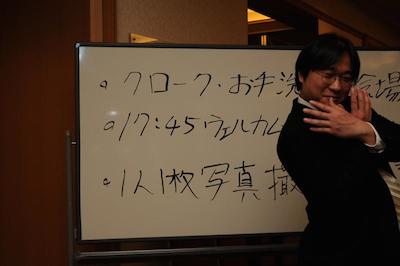 。クローク・お手洗 会場
。17:45 ウェルカム
。1人1枚写真撮